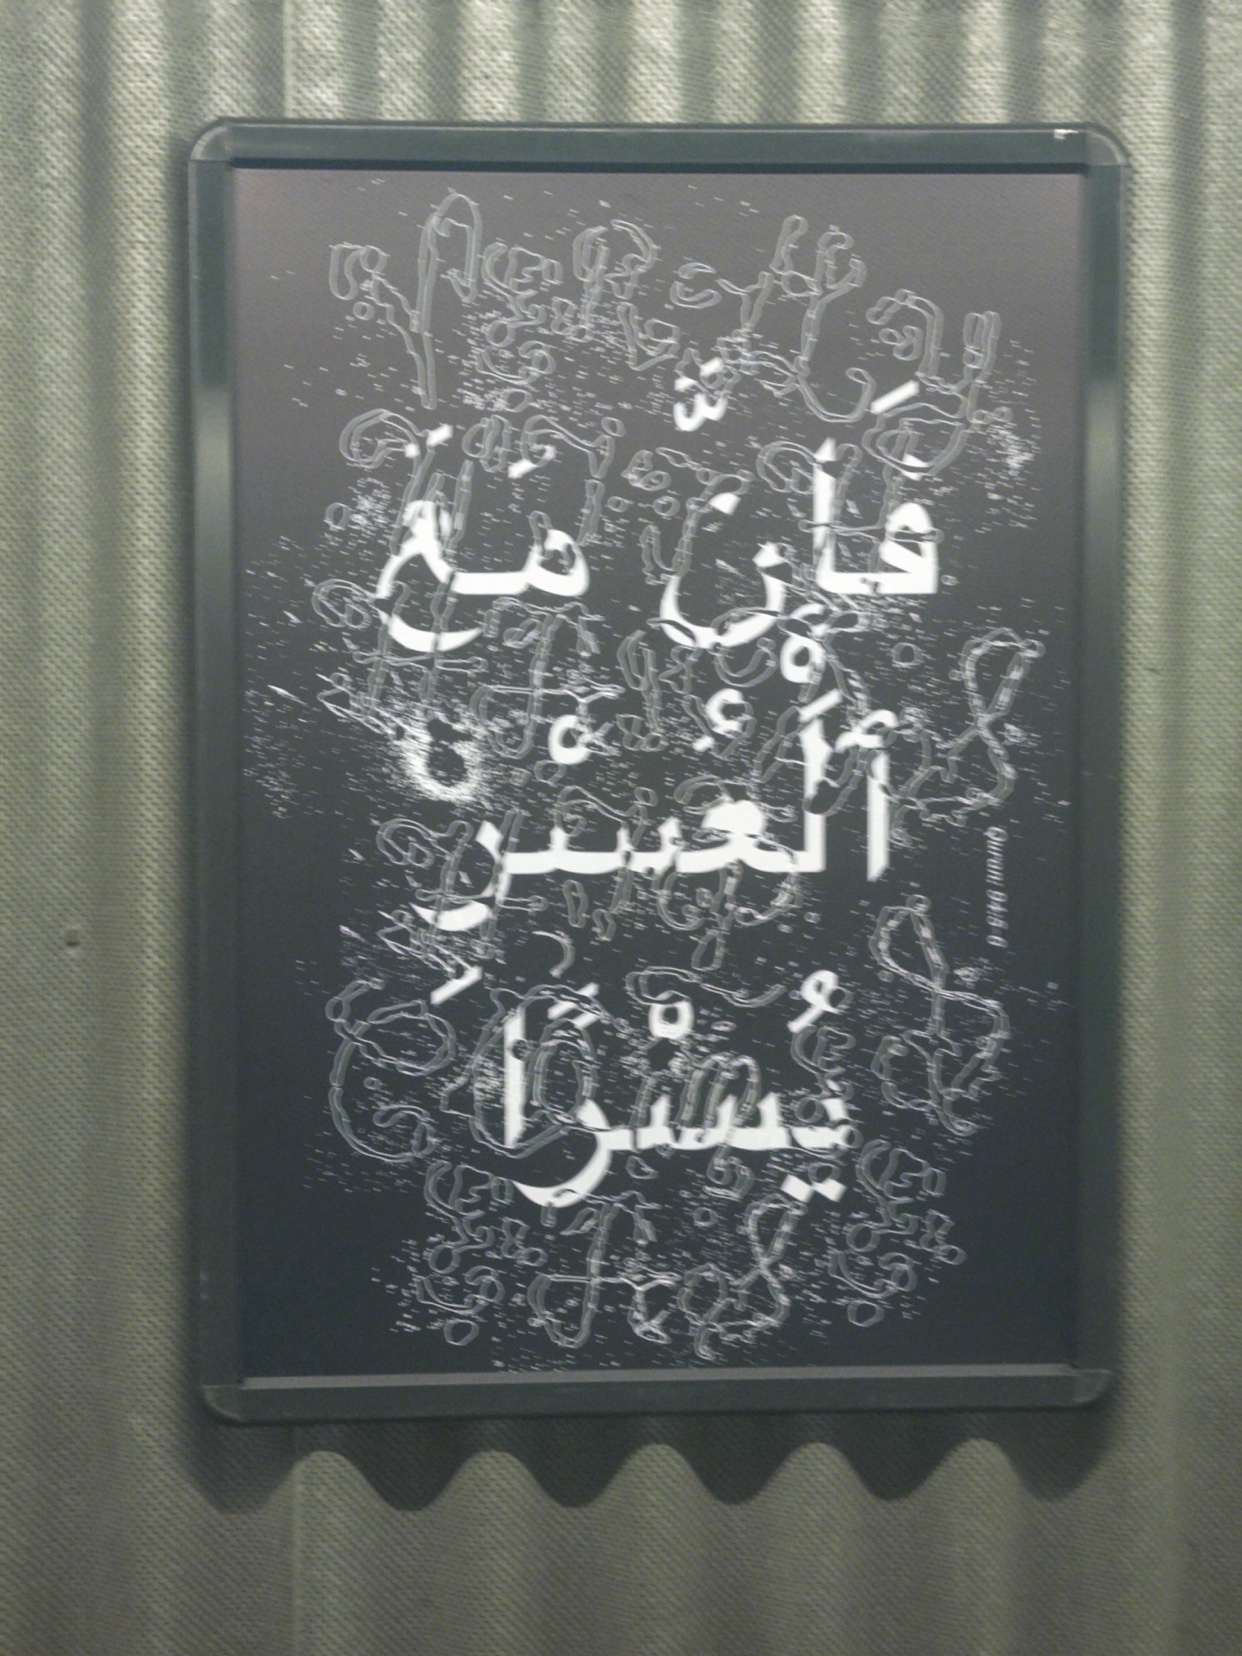 فَإِنَّ مَعَ
ٱلْعُسْرِ
يُسْرًا